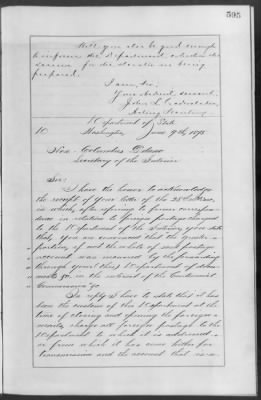 595
Will you also be good enough
to inform the Department, whether the
same for the
prepared.
I am, &c.
Your obedient servant,
John L. Cadwalader
Acting Secretary
Department of State
Washington, June 9th, 1875
Hon. Columbus Delano
Secretary of the Interior
Sir:
I have the honor to acknowledge
the receipt of your letter of the 28th ultimo,
in which, after referring to former correspon-
dence in relation to foreign postage charged
to the Department of the Interior, you state
that, you are convinced that the greater
portion, if not the whole of said postage
account was incurred by the forwarding
through your (this) Department of docu-
ments &c. in the interest of the Centennial
Commission &c.
In reply I have to state that it has
been the custom of this Department at the
time of closing and opening the foreign
mails, charge all foreign postage to the
Department to which it is addressed
or from which it has come hither for
transmission and the account that is a